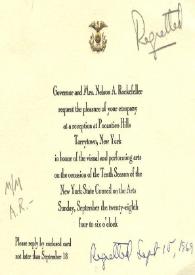 Regretted
Governor and Mrs. Nelson A. Rockefeller
request the pleasure of your company
at a reception at Pocantico Hills
Tarrytown, New York
in honor of the visual and performing arts
on the occasion of the Tenth Season of the
New York State Council on the Arts
Sunday, September the twenty-eighth
four to six o'clock
M/M
A.R.-
Please reply by enclosed card
not later than September 18
Regretted Sept 15, 1969